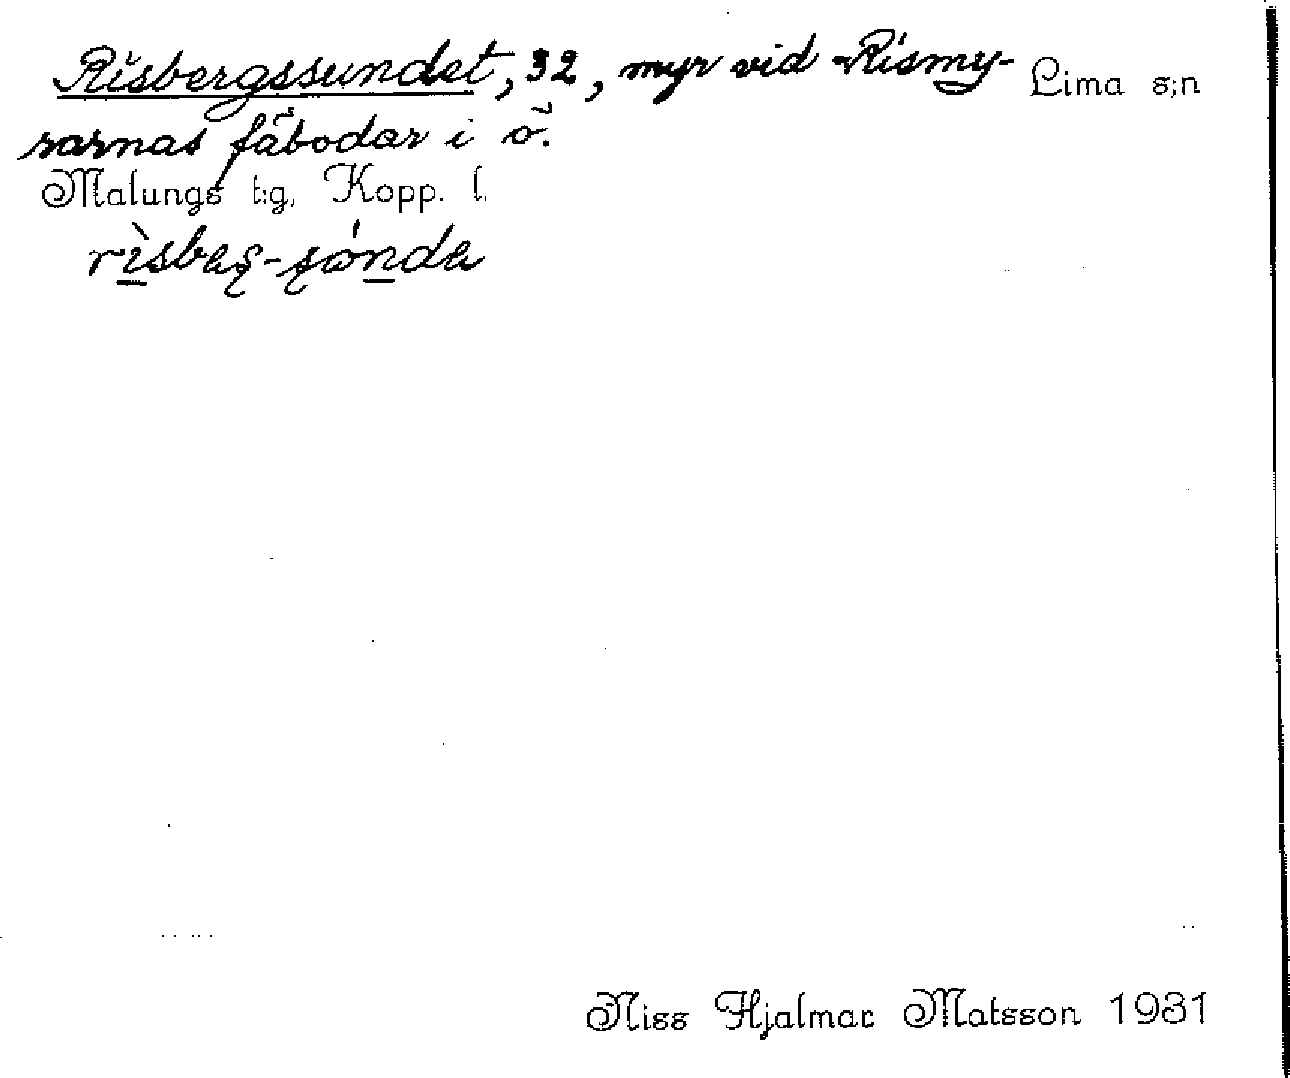 Risbergssundet, 32, myr vid Rismy- Lima s:n
rarnas fäbodar i ö.
Malungs t:g, Kopp. l.
rìsbaş-şón̲da
Niss Hjalmar Matsson 1931